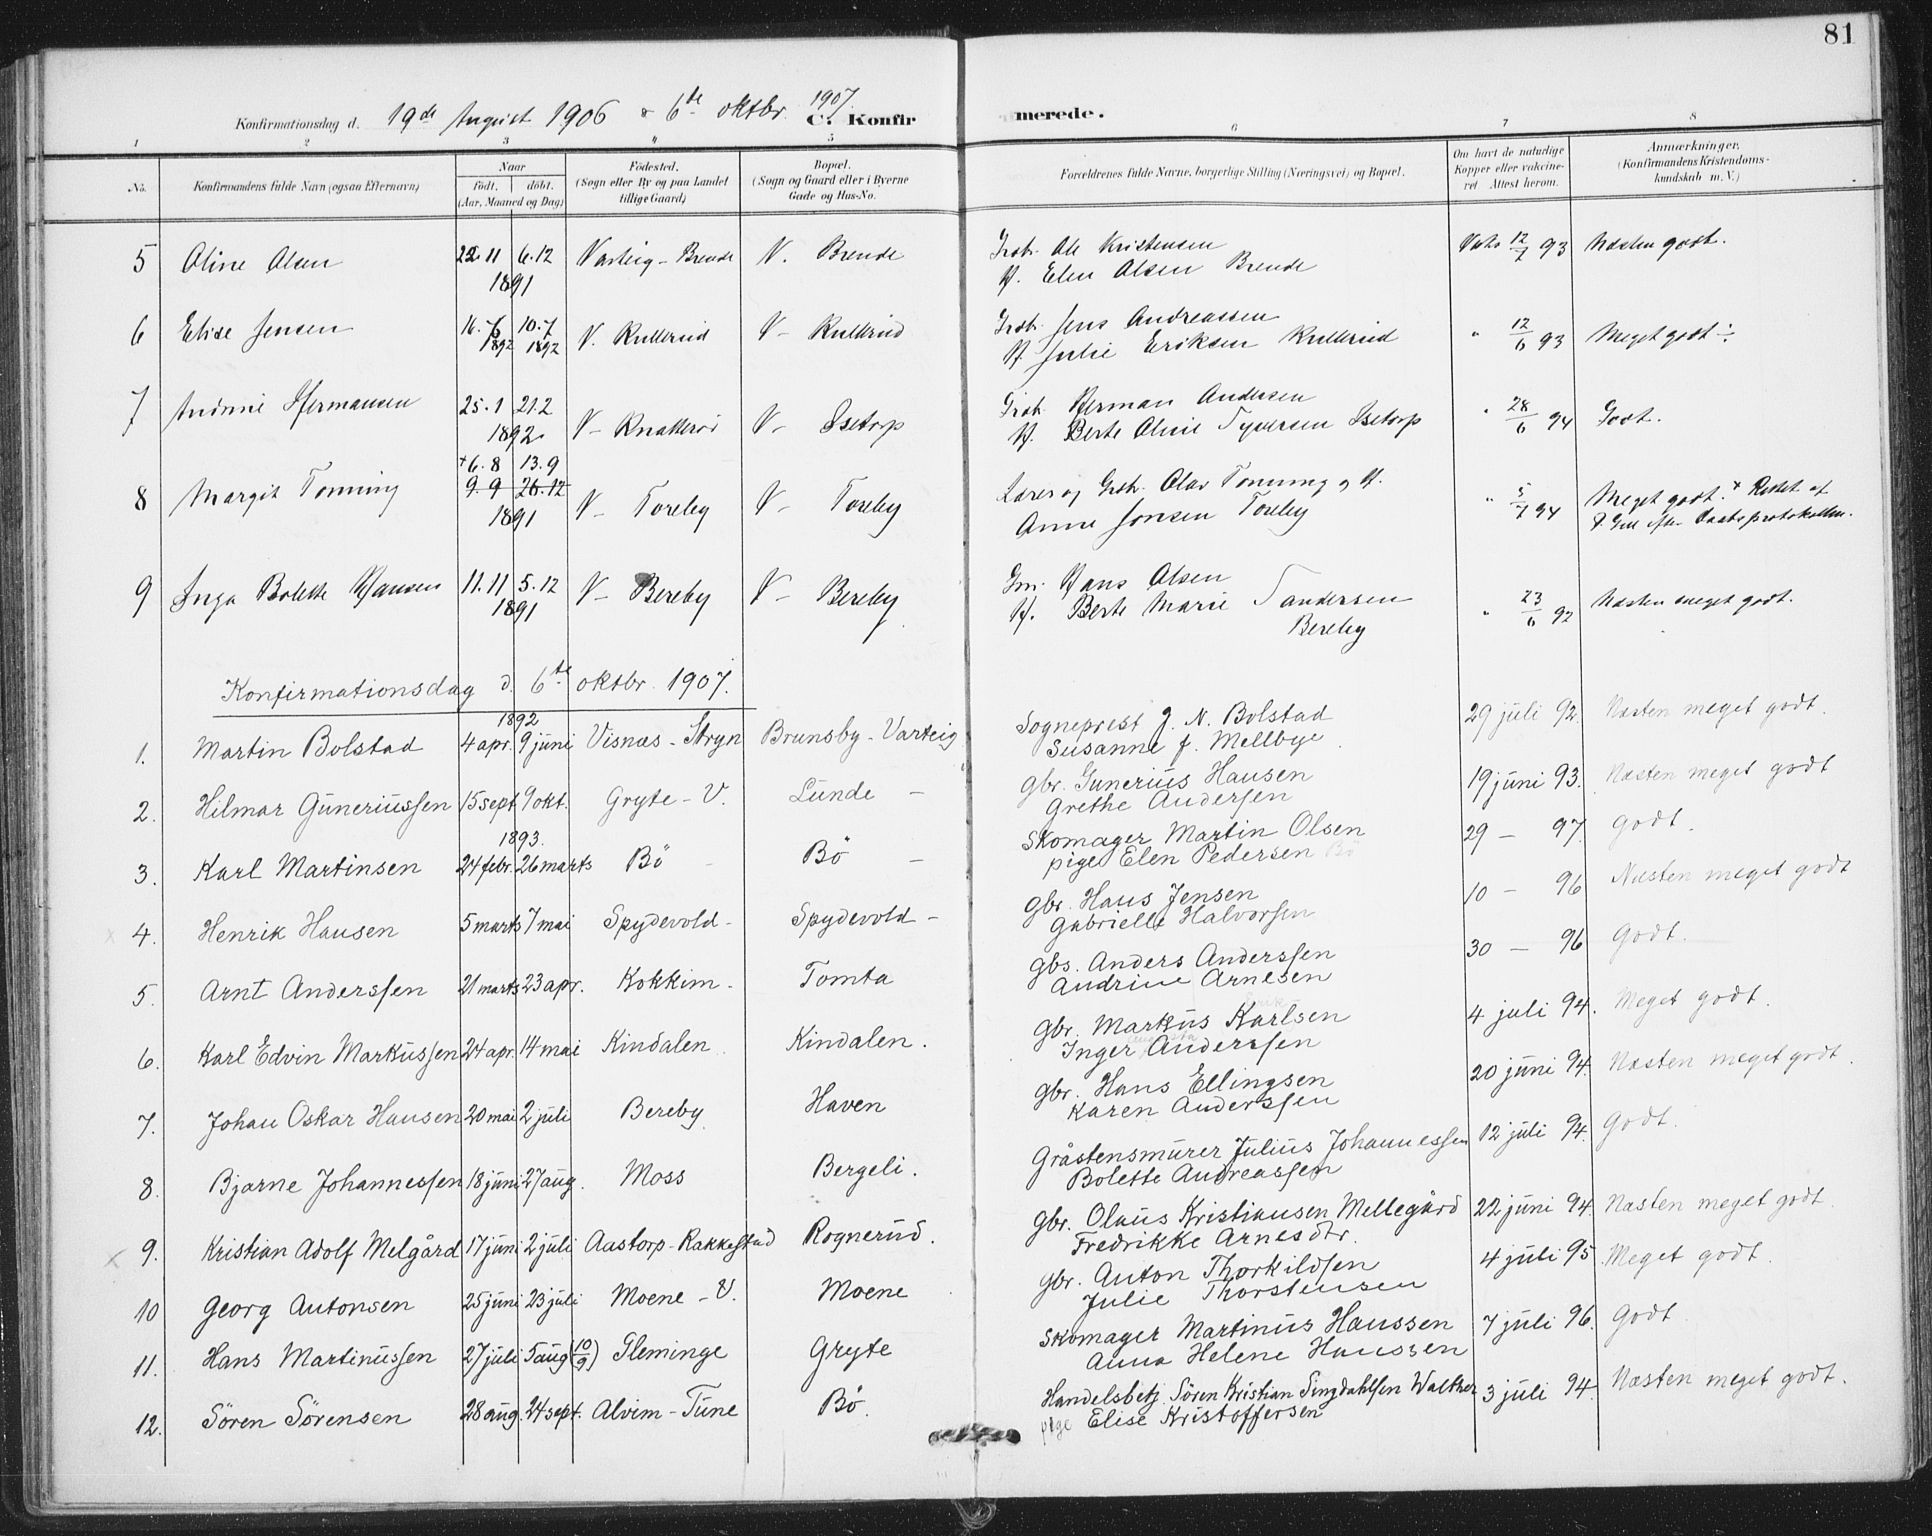 81
Konfirmationsdag d. 19de August 1906 & 6te oktbr. 1907. C. Konfirmerede.
1 2 3 4 5 6 7 8
No. Konfirmandens fulde Navn (ogsaa Efternavn) Naar født. døbt. (Aar, Maaned og Dag) Fødested. (Sogn eller By og paa Landet tillige Gaard) Bopæl. (Sogn og Gaard eller i Byerne Gade og Hus-No. Forældrenes fulde Navne, borgerlige Stilling (Næringsvei) og Bopæl. Om havt de naturlige Kopper eller vakcineret. Attest herom. Anmærkninger. (Konfirmandens Kristendomskundskab m. V.)
5 Oline Olsen 22.11 6.12 1891 Varteig - Brende V. Brende Grbr. Ole Kristensen Vaks 12/7 93 Næsten godt.
H. Elen Olsen Brende
6 Elise Jensen 16.6 1892 10.7 1892 V. Kullerud V - Kullerud Grbr. Jens Andreassen " 12/6 93 Meget godt ÷
H. Julie Eriksen Kullerud
7 Hermansen 25.1 21.2 1892 V - Knatterød V - Isetorp Grbr. Herman Andersen " 28/6 94 Godt.
H. Berte Oline Isetorp
8 Margit Tonning +6.8 13.9 9.9 26.12 1891 V - Toreby V - Toreby Lærer og Grbr. Olav Tonning og H. " 5/7 94 Meget godt. + Rettet af
Anne Jonsen Toreby daabsprotokollen.
9 Inga Bolette Hansen 11.11 5.12 1891 V - Bereby V - Bereby Gm. Hans Olsen " 23/6 92 Næsten meget godt.
H. Berte Marie Tandersen
Bereby
Konfirmationsdag d. 6te oktbr. 1907.
1. Martin Bolstad 1892 4 apr. 9 juni Visnæs - Stryn Brunsby - Varteig Sogneprest J. N. Bolstad 29 juli 92. Næsten meget godt.
Susanne f. Mellbye
2. Hilmar Guneriussen 15 sept 9 okt. Gryte - V. Lunde - gbr. Gunerius Hansen 19 juni 93. Næsten meget godt
Grethe Anderssen
3. Karl Martinsen 1893. 24 febr. 26 marts Bö - Bö - Skomager Martin Olsen 29 - 97 godt.
pige Elen Pedersen Bö
4. Henrik Hansen 5 marts 7 mai Spydevold - Spydevold - gbr. Hans Jensen 10 - 96 Næsten meget godt
Gabrielle Halvorsen
5. Arnt Anderssen 21 marts 23 apr. Kokkim - Tomta gbs. Anders Anderssen 30 - 96 Godt.
Andrine Arnesen
6. Karl Edvin Markussen 24 apr. 14 mai Kindalen Kindalen. gbr. Markus Karlsen 4 juli 94. Meget godt.
Inger Anderssen
7. Johan Oskar Hansen 20 mai 2 juli Bereby Haven gbr. Hans Ellingsen 20 juni 94. Næsten meget godt.
Karen Anderssen
8. Bjarne Johannessen 18 juni 27 aug. Moss Bergeli. Gråstensmurer Julius Johannessen 12 juli 94. Godt.
Bolette Andreassen
9. Kristian Adolf Melgård 17 juni 2 juli Aastorp - Rakkestad Rognerud. gbr. Olaus Kristiansen Mellegård 22 juni 94. Næsten meget godt
Fredrikke Arnesdtr.
10 Georg Antonsen 25 juni 23 juli Moene - V. Moene gbr. Anton Thorkildsen 4 juli 95 Meget godt.
Julie Thorstensen
11. Hans Martinussen 27 juli 5 aug (10/9) Fleminge Gryte Skomager Martinus Hanssen 7 juli 96. Godt.
Anna Helene Hanssen
12. Sören Sörensen 28 aug. 24 sept. Alvim - Tune Bö. Handelsbetj. Sören Kristian Singdahlsen Walther 3 juli 94. Næsten meget godt.
pige Elise Kristoffersen